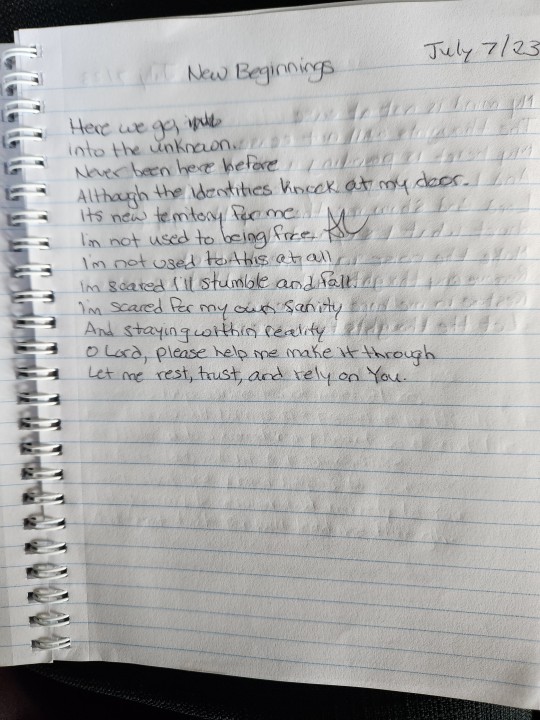 July 7/23
New Beginnings
Here we go,
into the unknown.
Never been here before
Although the identities knock at my door.
Its new territory for me
I'm not used to being free.
I'm not used to this at all
I'm scared I'll stumble and fall.
I'm scared for my own sanity
And staying within reality
O Lord, please help me make it through
Let me rest, trust, and rely on You.